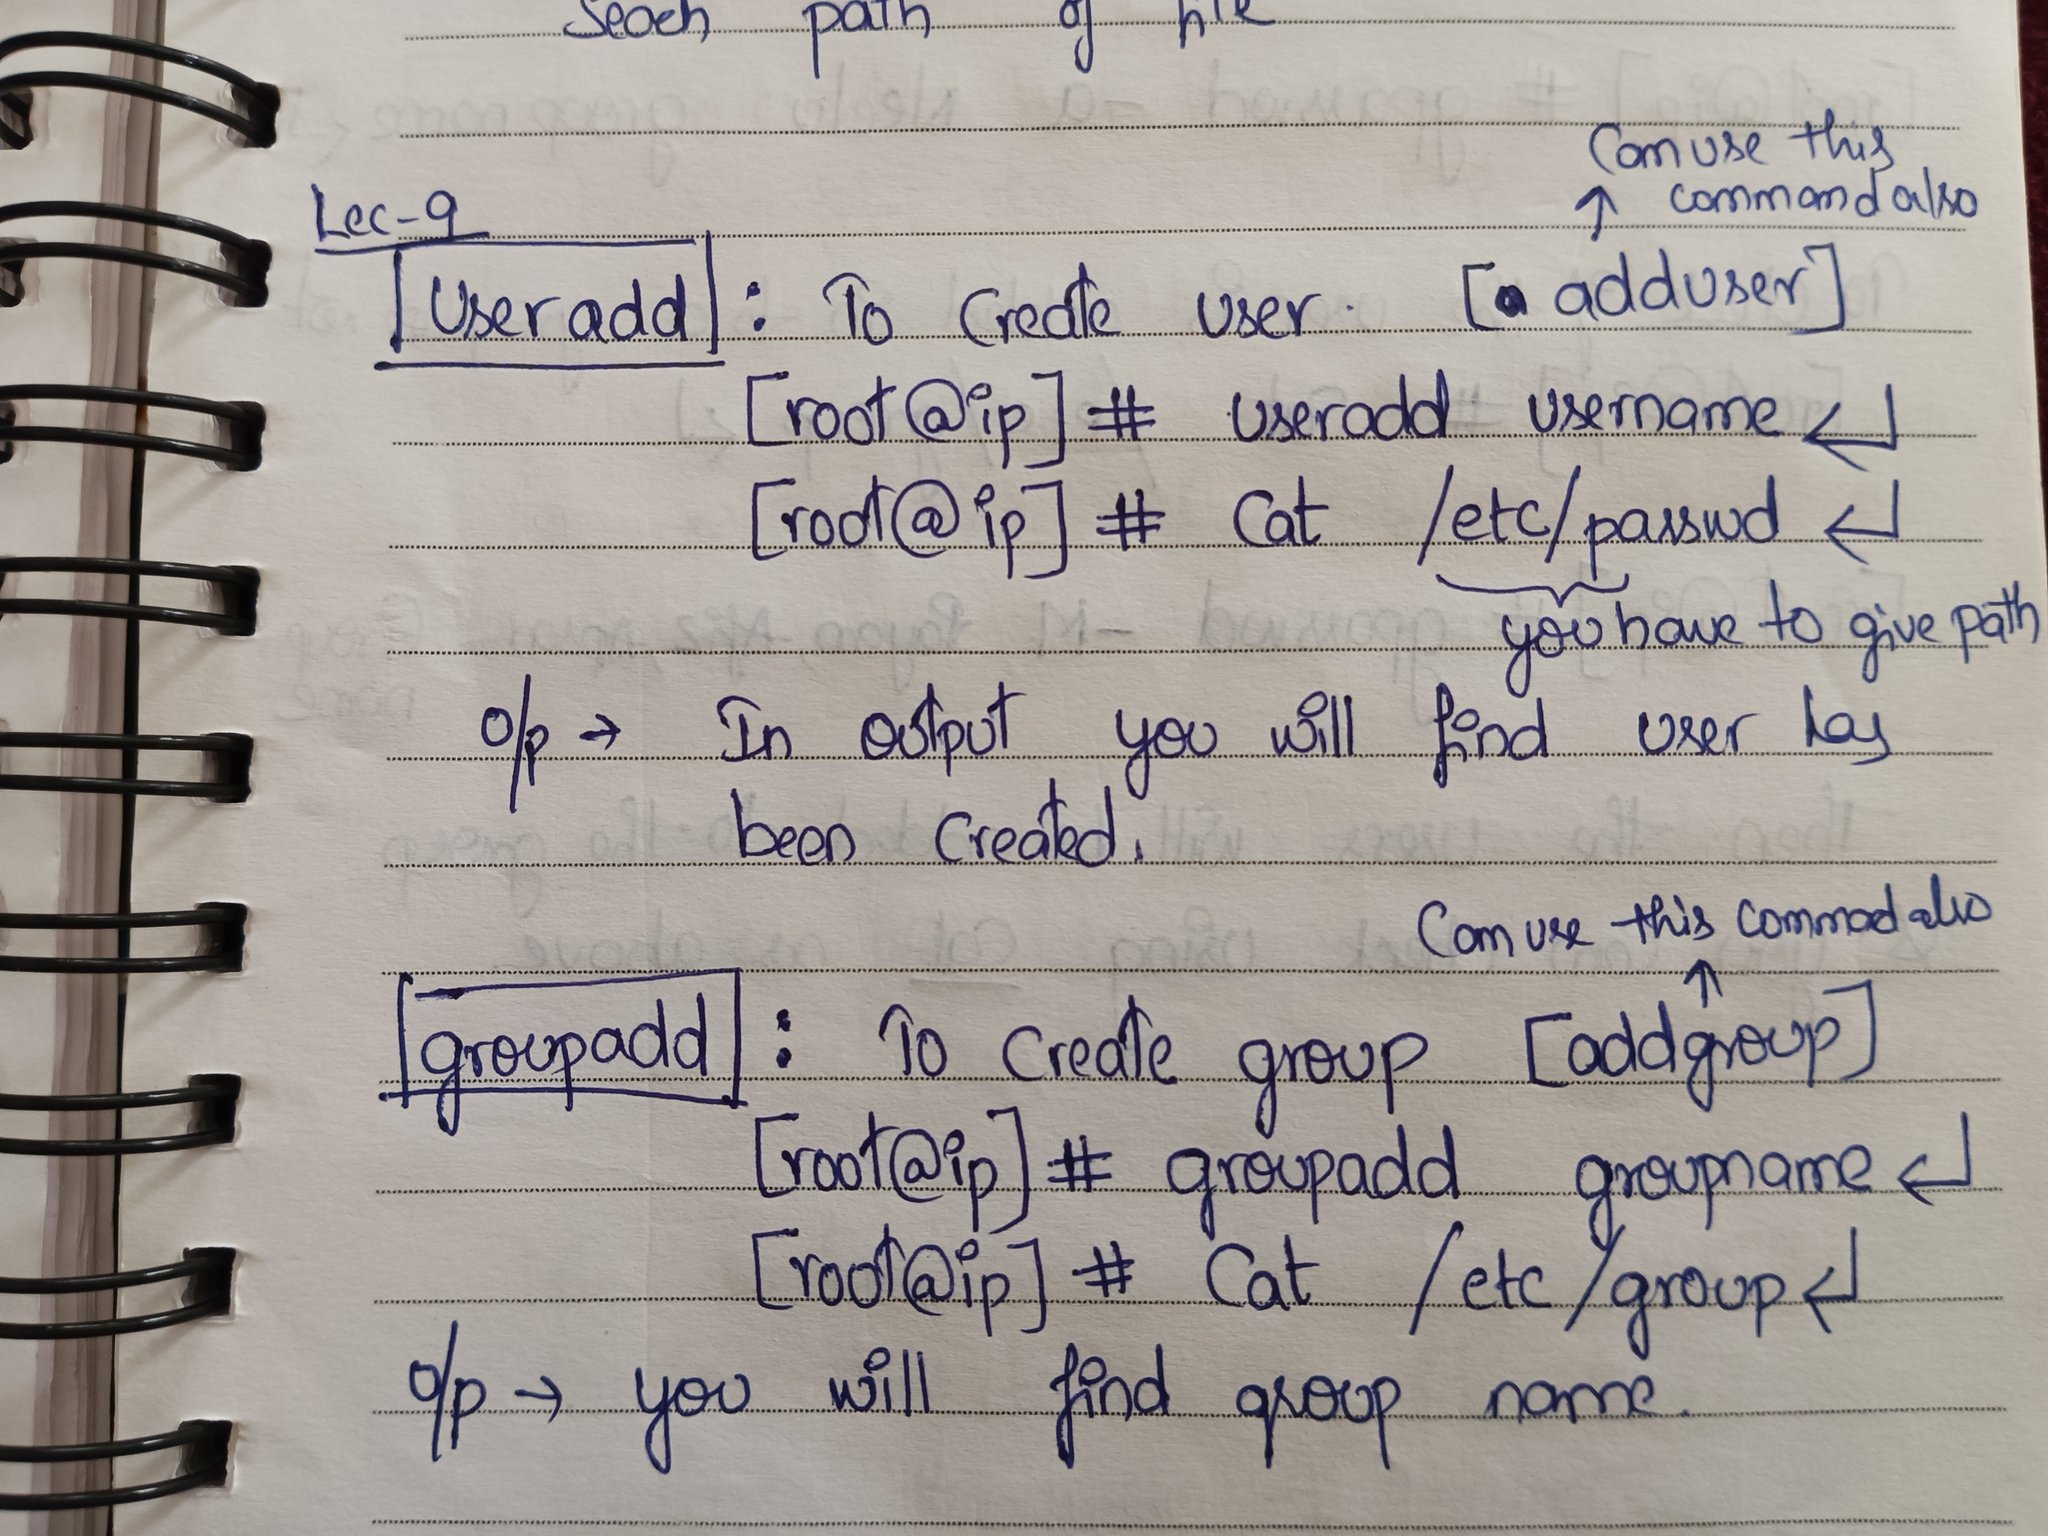 Seach path of file
Can use this
Lec-9 ↑ command also
[Useradd] : To Create user. [adduser]
[root@ip] # useradd username ↵
[root@ip] # Cat /etc/passwd ↵
you have to give path
o/p → In output you will find user has
been Created.
Can use this commad also
↑
[groupadd] : To Create group [addgroup]
[root@ip] # groupadd groupname ↵
[root@ip] # Cat /etc/group ↵
o/p → you will find group name.